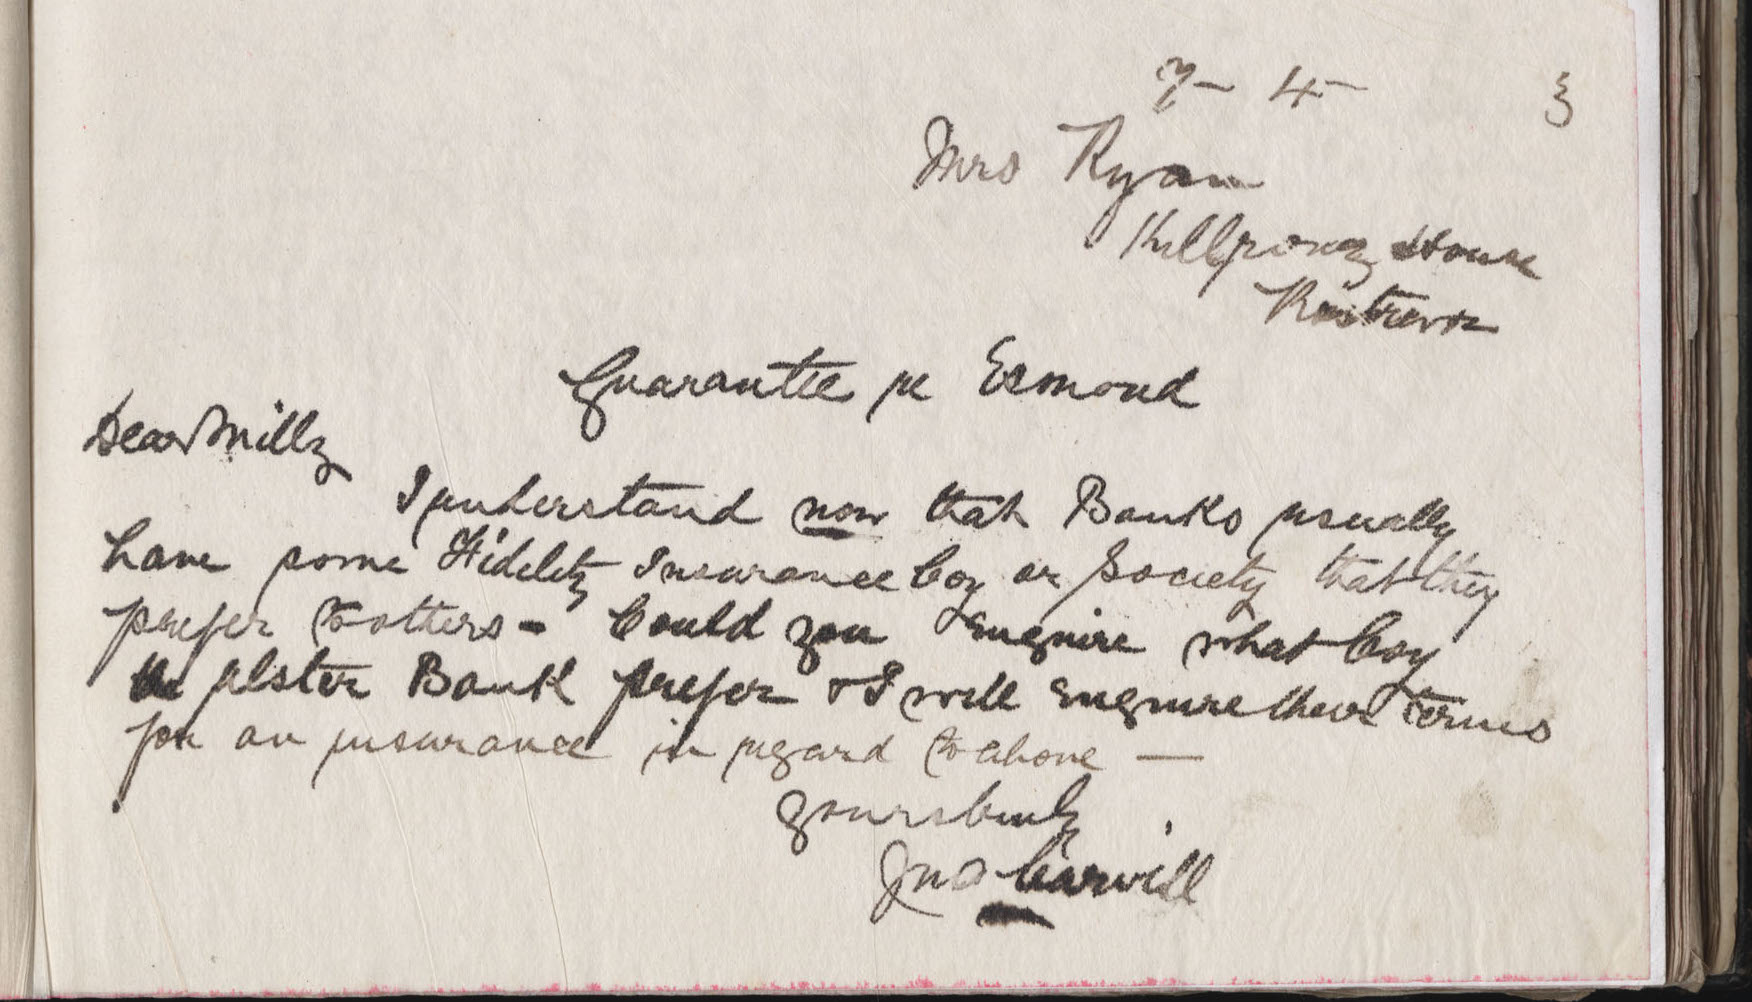 7 - 4 - 3
Mrs Ryan
Killowen House
Rostrevor
Guarantee re Esmond
Dear Milly
I understand now that Banks usually
have some Fidelity Insurance Coy or Society that they
prefer to others - Could you enquire what Coy
the Ulster Bank prefer & I will enquire their terms
for an insurance in regard to above —
Yours truly
Jno Carvill